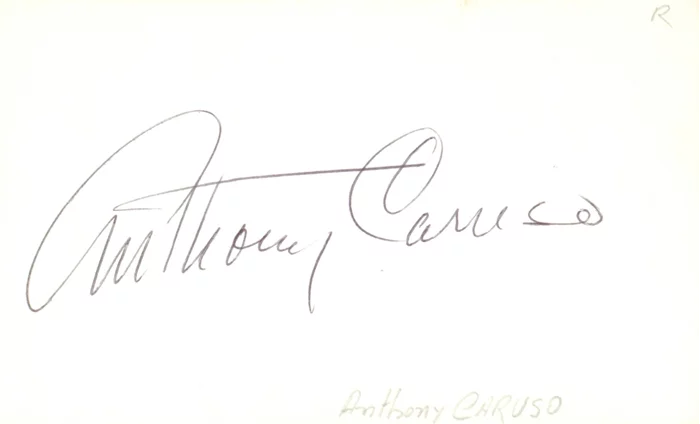 R
Anthony Caruso
Anthony CARUSO